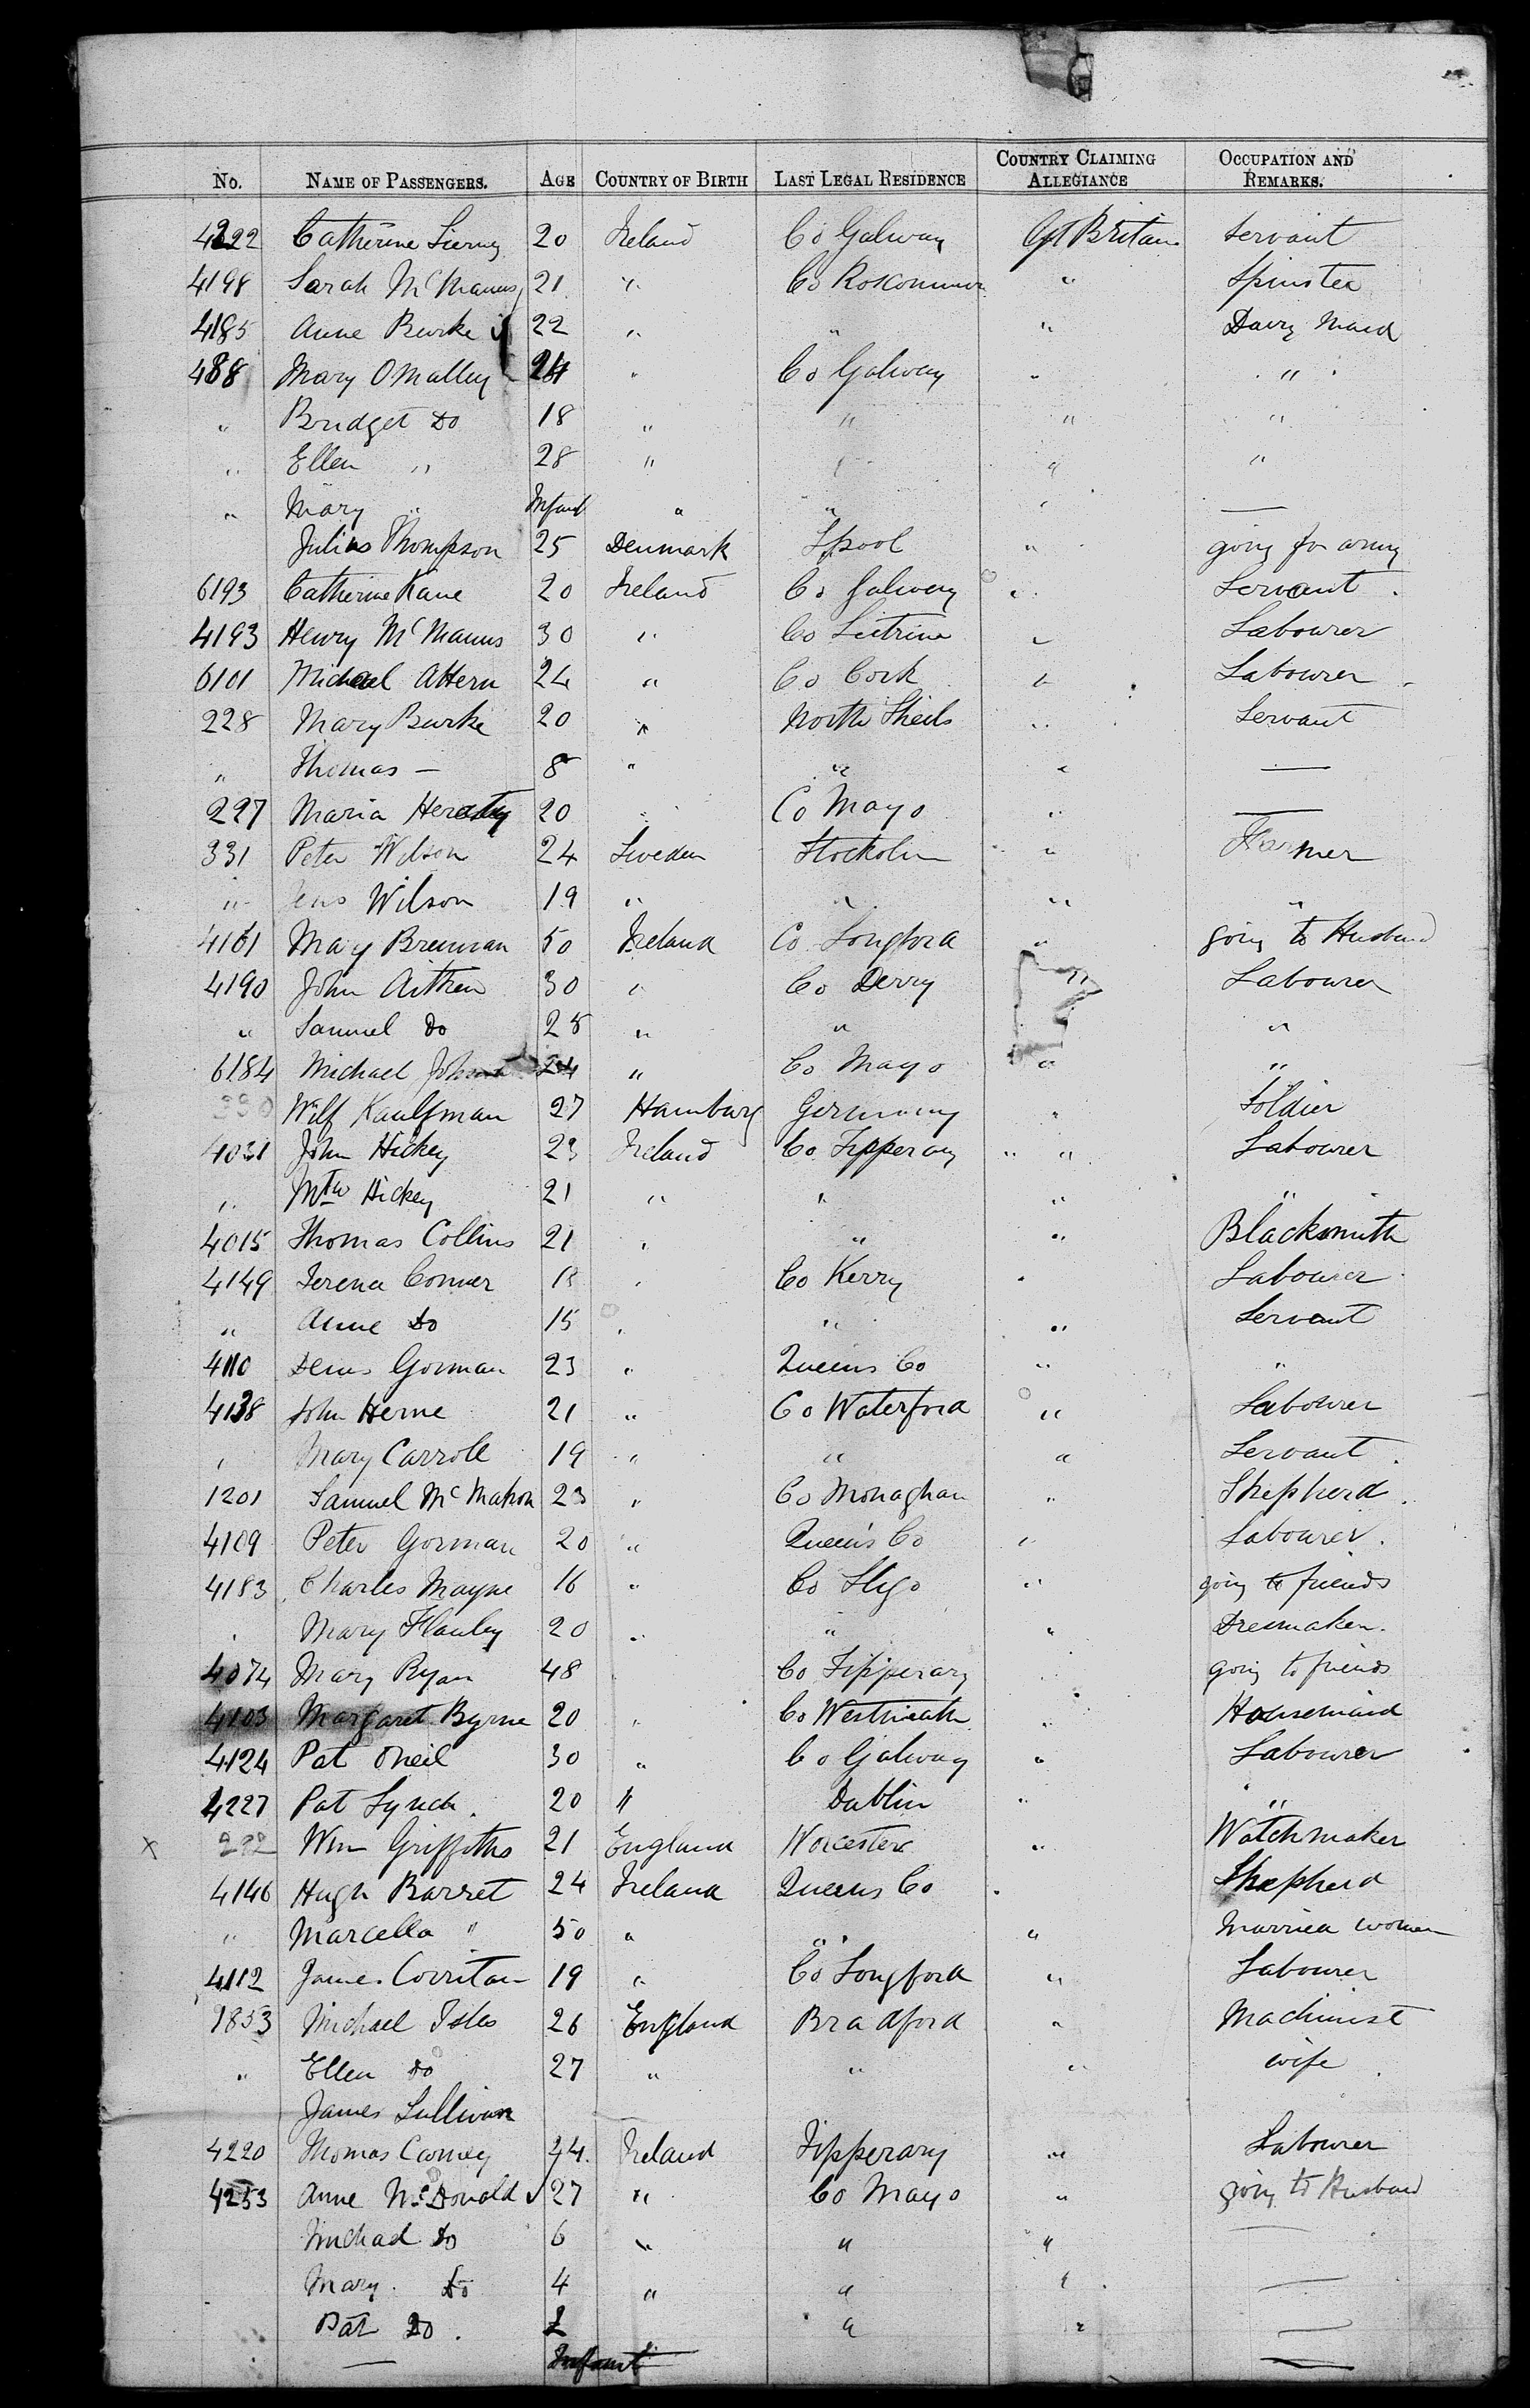 No. NAME OF PASSENGERS. AGE COUNTRY OF BIRTH LAST LEGAL RESIDENCE COUNTRY CLAIMING ALLEGIANCE OCCUPATION AND REMARKS.
4222 Catherine Tierney 20 Ireland Co Galway Gt Britain Servant
4198 Sarah McManus 21 " Co Roscommon " Spinster
4185 Anne Burke 22 " " " Dairy Maid
488 Mary OMalley 24 " Co Galway " "
" Bridget Do 18 " " " "
" Ellen " 28 " " "
" Mary " Infant " " " —
Julius Thompson 25 Denmark Lpool " going for army
6193 Catherine Kane 20 Ireland Co Galway " Servant
4193 Henry McManus 30 " Co Leitrim " Labourer
6101 Michael Ahern 24 " Co Cork " Labourer
228 Mary Burke 20 " North Sheils " Servant
" Thomas — 8 " " " —
227 Maria Heraty 20 " Co Mayo " —
331 Peter Wilson 24 Sweden Stockolm " Farmer
" Jens Wilson 19 " " " "
4161 Mary Brennan 50 Ireland Co Longford " going to Husband
4190 John Aitken 30 " Co Derry " Labourer
" Samuel Do 28 " " "
6184 Michael 24 " Co Mayo " "
330 Wilf Kaulfman 27 Hamburg Germany " Soldier
4031 John Hickey 23 Ireland Co Tipperary " " Labourer
" Mtw Hickey 21 " " " "
4015 Thomas Collins 21 " " " Blacksmith
4149 Conner " Co Kerry " Labourer
" Anne Do 15 " " " Servant
4110 Denis Gorman 23 " Queens Co " "
4138 John Herne 21 " Co Waterford " Labourer
" Mary Carroll 19 " " " Servant
1201 Samuel McMahon 23 " Co Monaghan " Shepherd
4109 Peter Gorman 20 " Queen's Co " Labourer.
4183 Charles Mayne 16 " Co Sligo " going to friends
" Mary Flanley 20 " " " Dresmaker.
4074 Mary Ryan 48 Co Tipperary " going to friends
4103 Margaret Byrne 20 " Co Westmeath " Housemaid
4124 Pat ONeil 30 " Co Galway " Labourer
4227 Pat Lynch. 20 " Dublin " "
x 222 Wm Griffiths 21 England Worcester " Watchmaker
4146 Hugh Barret 24 Ireland Queens Co " Shepherd
" Marcella " 50 " " " Married woman
4112 James 19 " Co Longford " Labourer
1853 Michael 26 England Bradford " Machinist
" Ellen Do 27 " " " wife
James Sullivan
4220 Thomas Carney 24 Ireland Tipperary " Labourer
4253 Anne McDonald 27 " Co Mayo " going to Husband
Michael Do 6 " " " —
Mary. Do 4 " " " —
Pat Do. 2 " " —
— Infant —